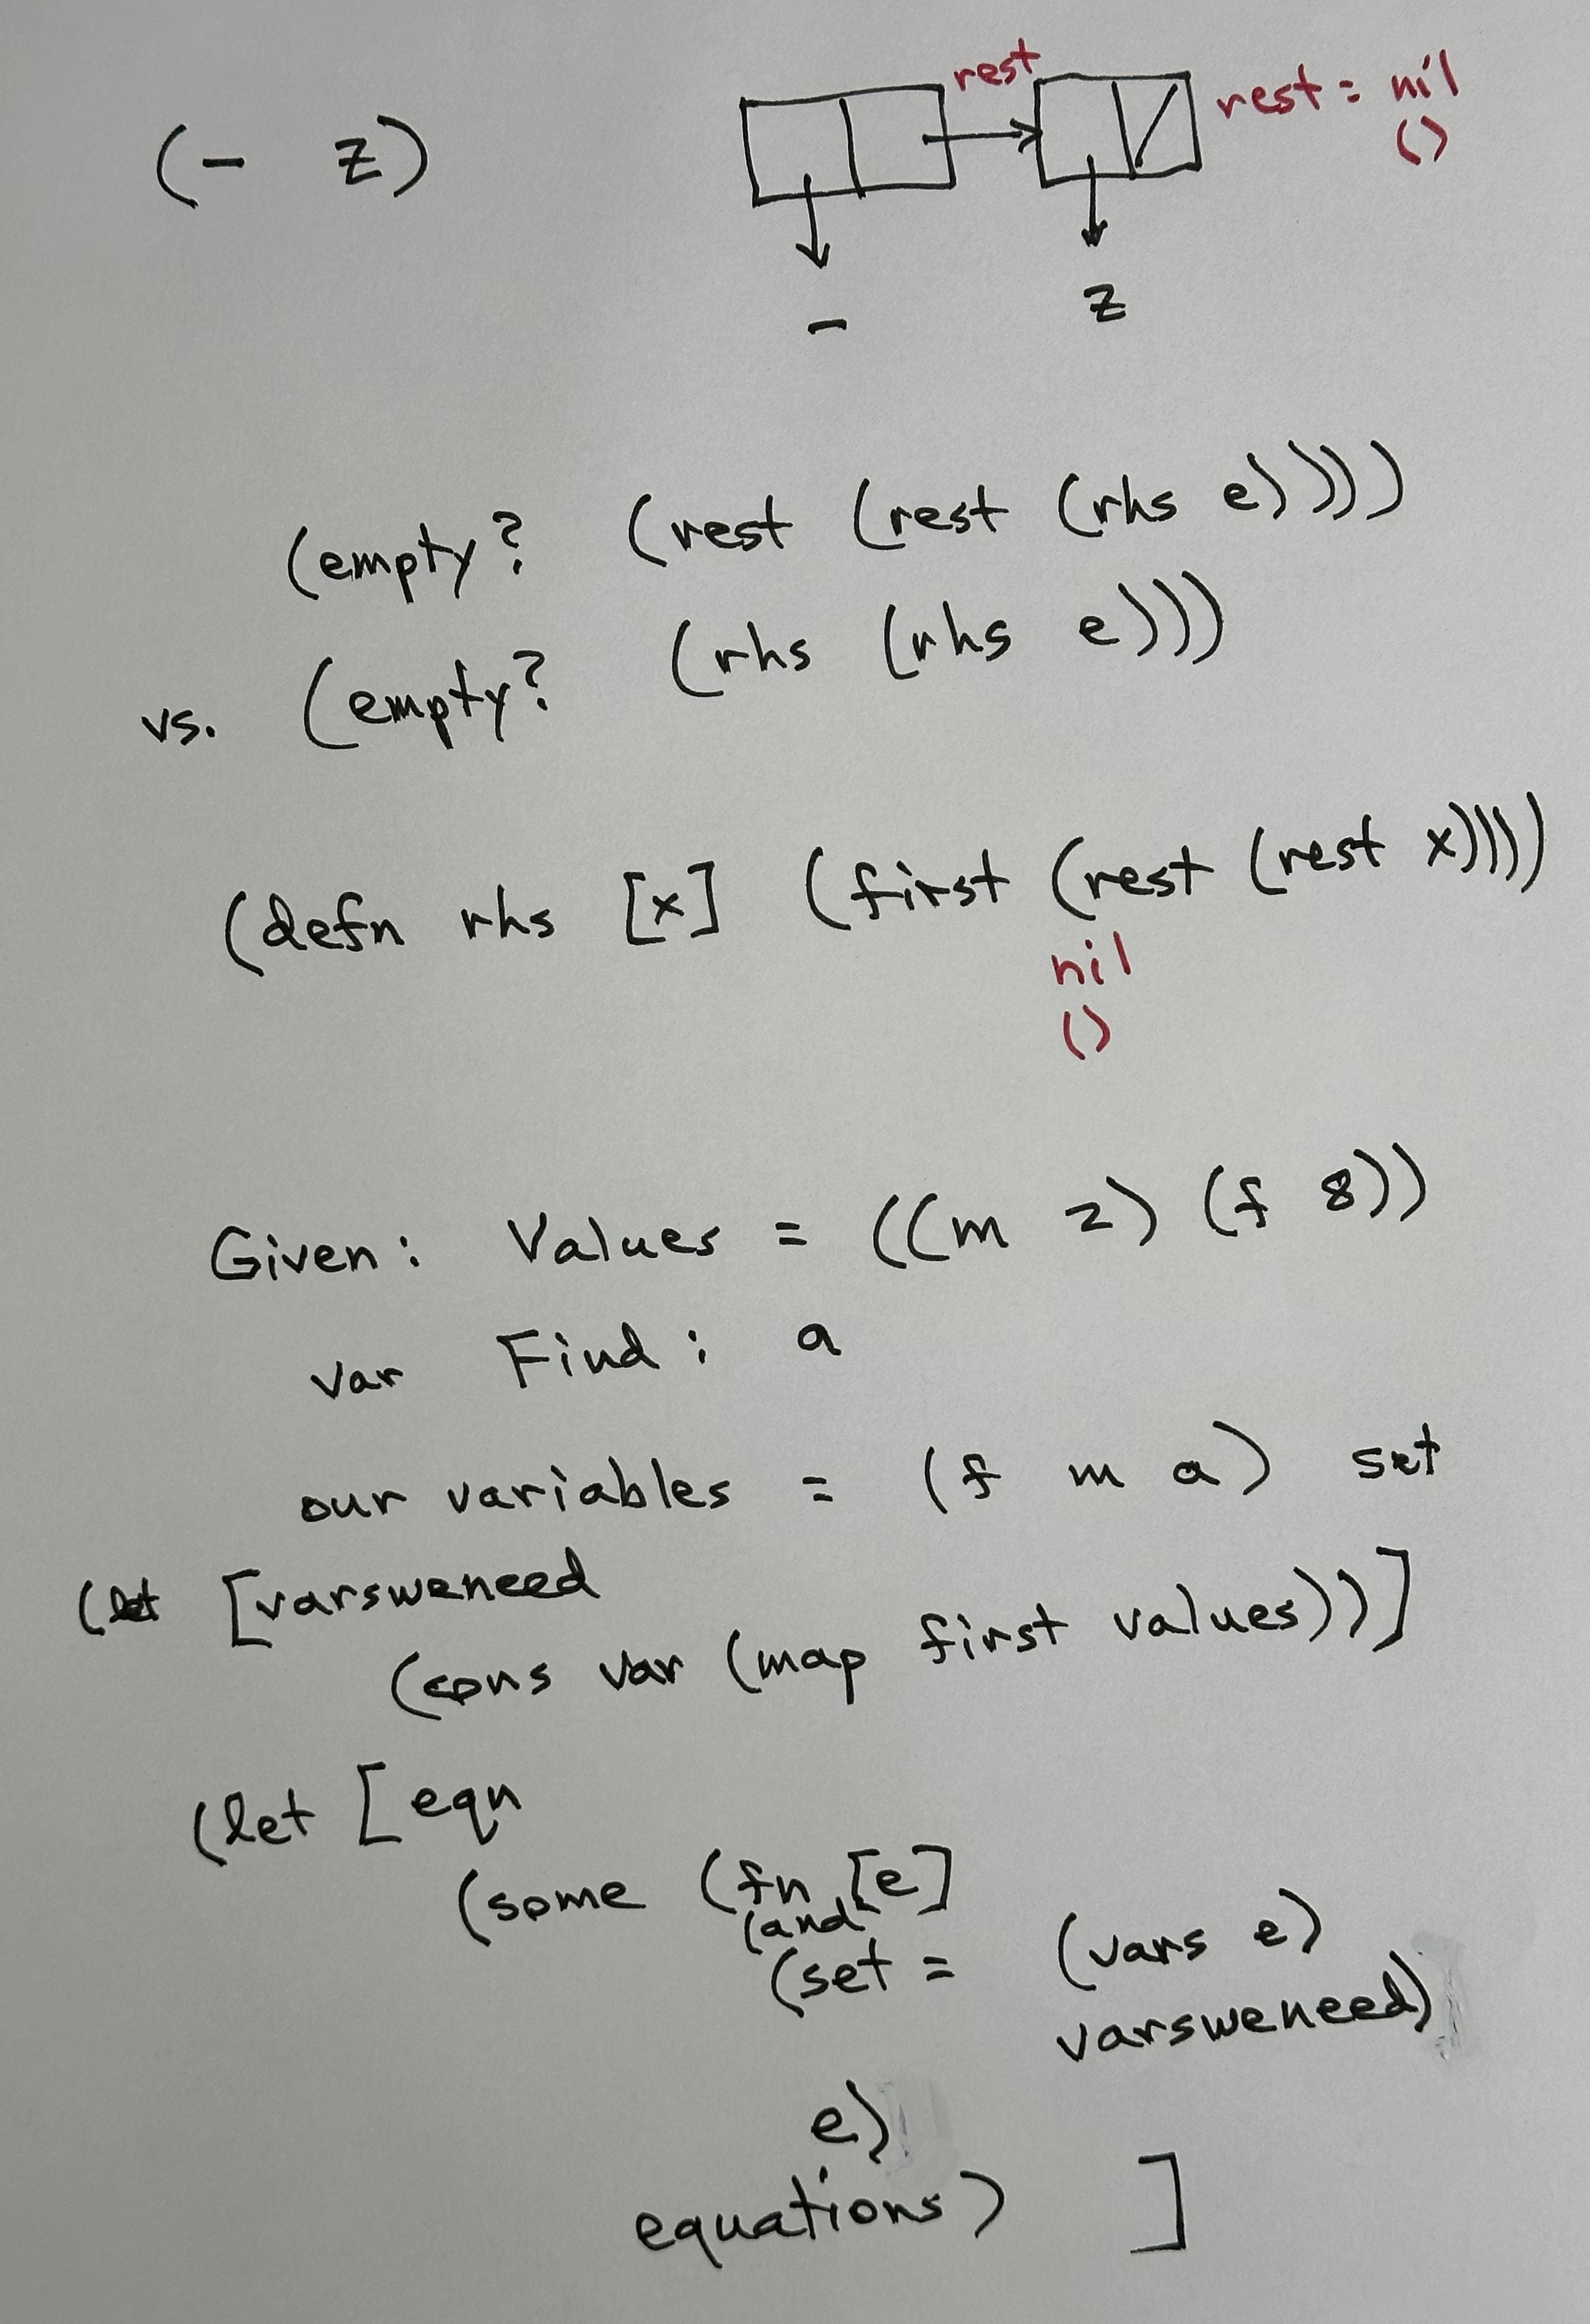 (- z)
rest
rest = nil
()
-
z
(empty? (rest (rest (rhs e))))
vs. (empty? (rhs (rhs e)))
(defn rhs [x] (first (rest (rest x))))
nil
()
Given: Values = ((m 2) (f 8))
var Find: a
our variables = (f m a) set
(let [varsweneed
(cons var (map first values))]
(let [eqn
(some (fn [e]
(and
(set = (vars e)
varsweneed)
e)
equations) ]